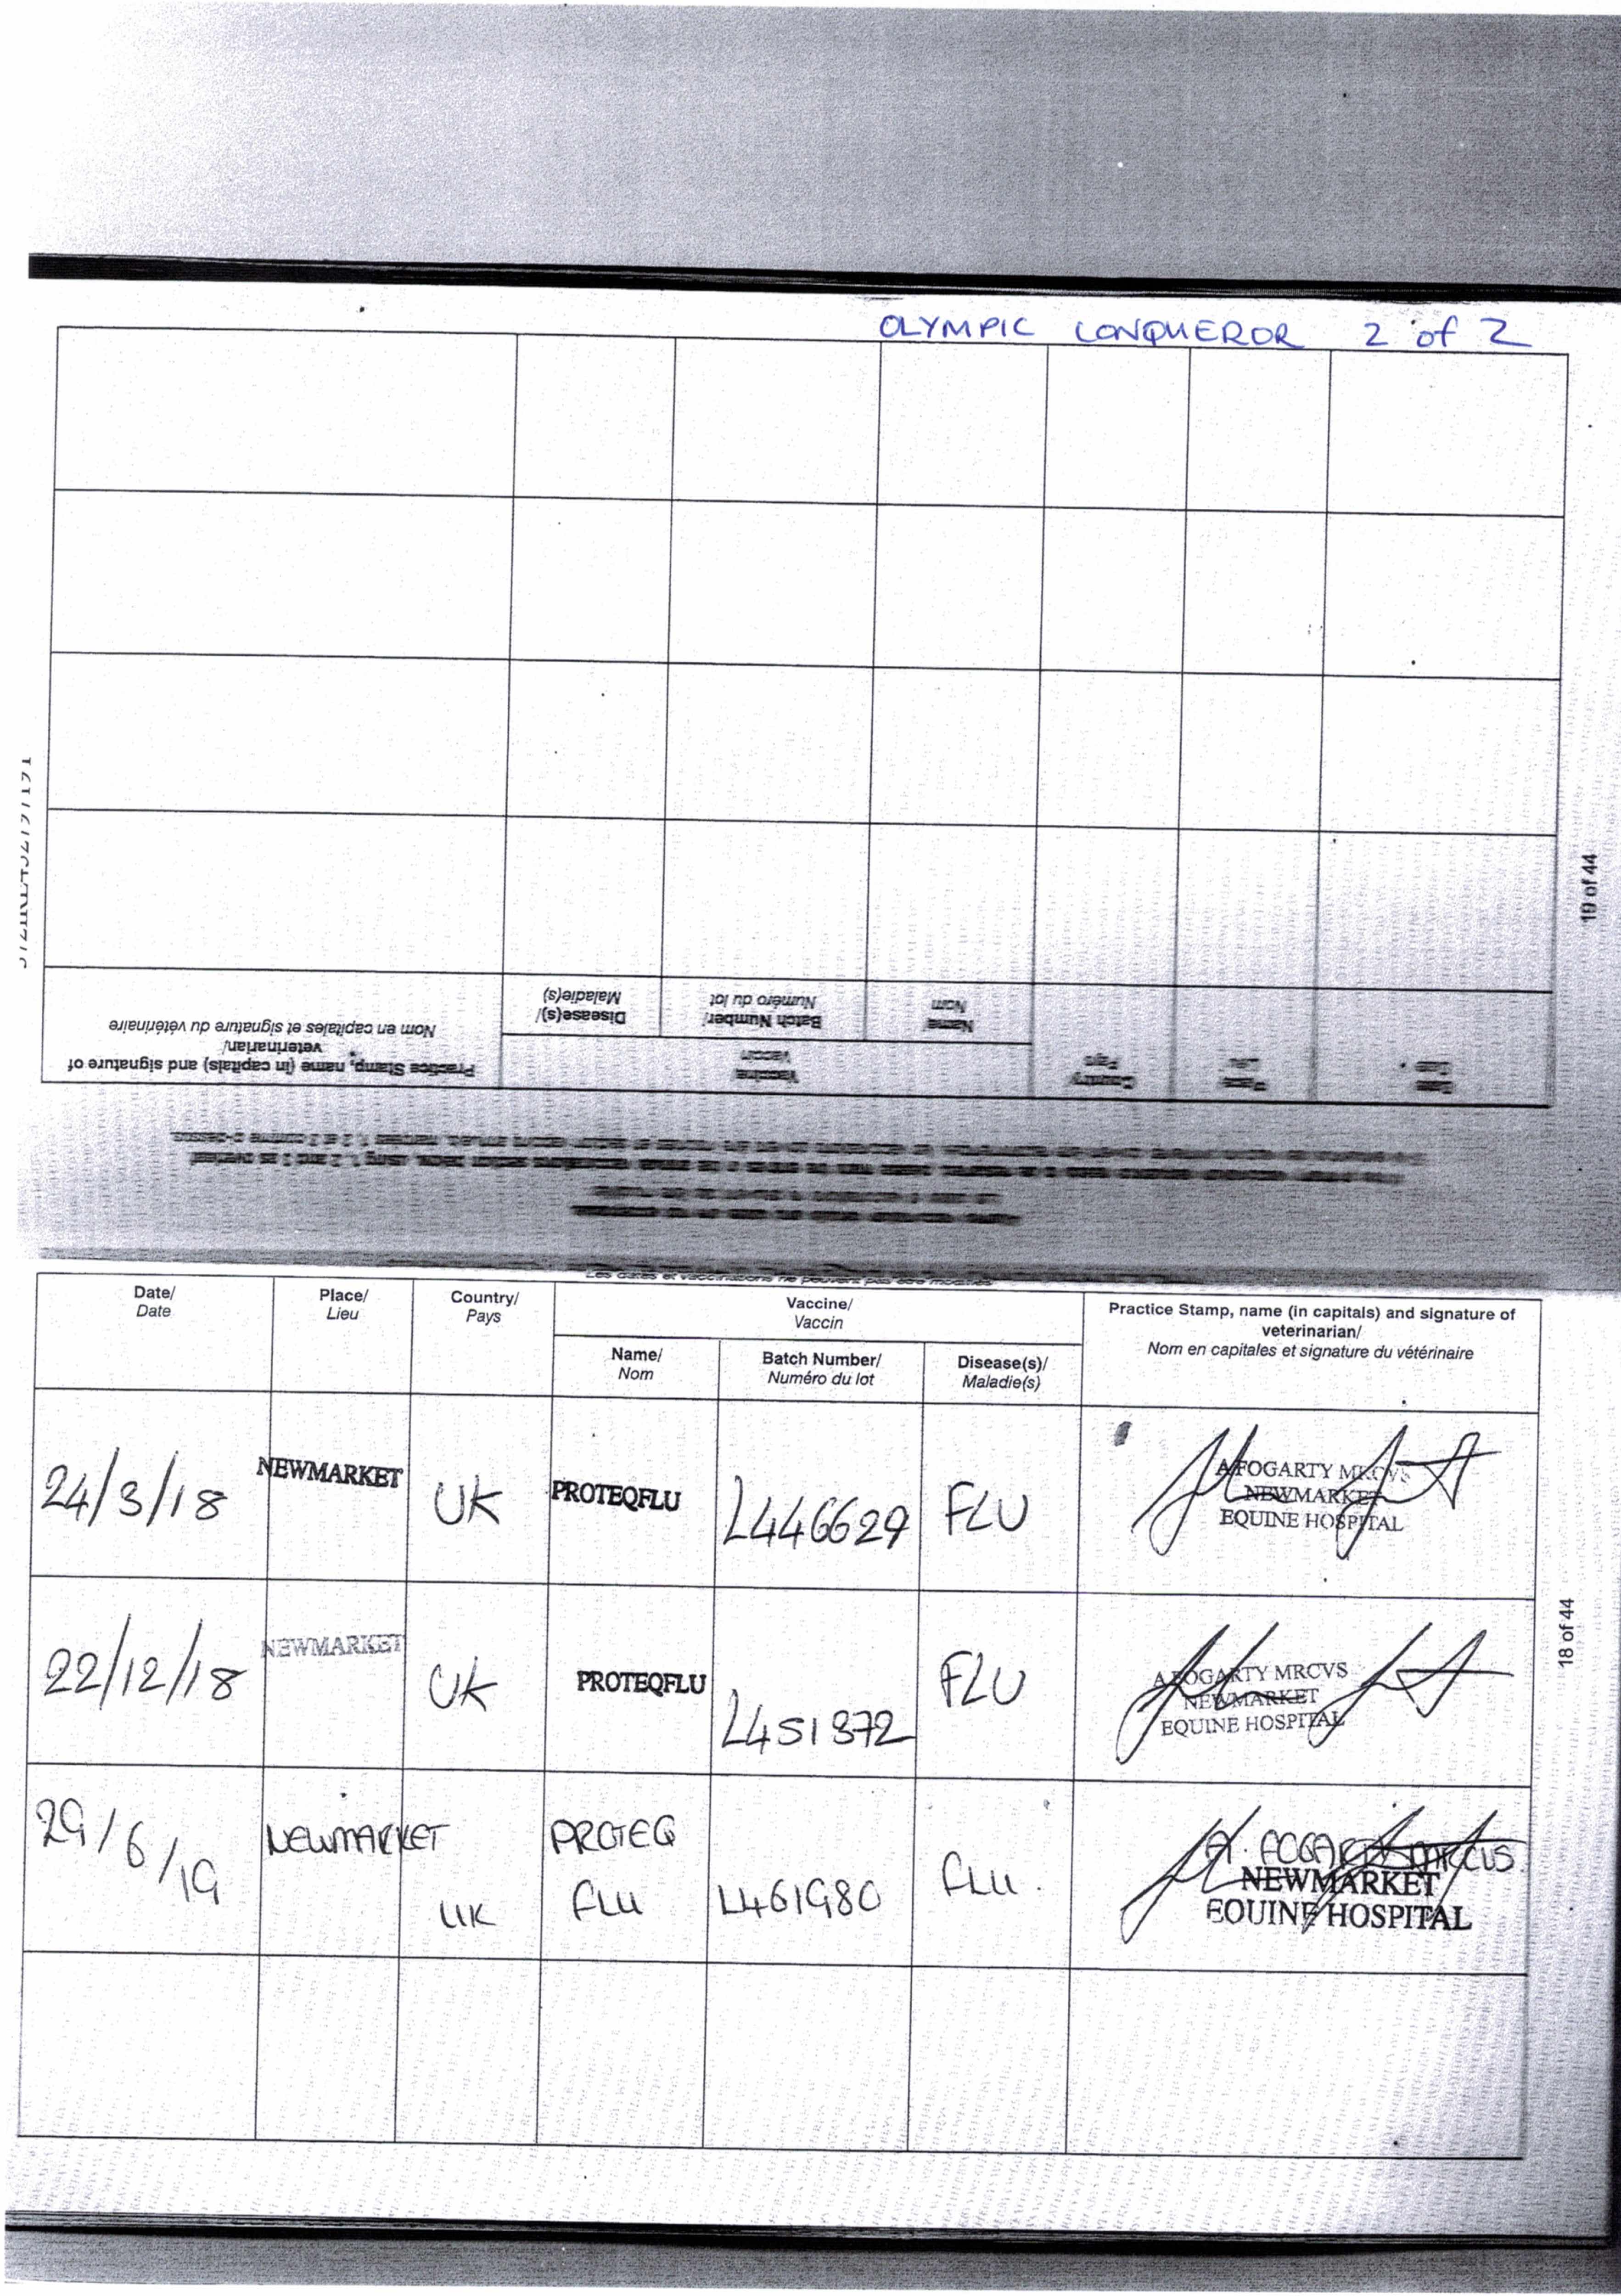 OLYMPIC CONQUEROR 2 of 2
19 of 44
Practice Stamp, name (in capitals) and signature of
veterinarian/
Nom en capitales et signature du vétérinaire
Disease(s)/
Maladie(s)
Batch Number/
Numéro du lot
Name
Nom
Vaccine
Vaccin
Country
Pays
Place
Lieu
Date
Date
Les dates et vaccinations ne peuvent pas être modifiés
Date/
Date
Place/
Lieu
Country/
Pays
Vaccine/
Vaccin
Name/
Nom
Batch Number/
Numéro du lot
Disease(s)/
Maladie(s)
Practice Stamp, name (in capitals) and signature of
veterinarian/
Nom en capitales et signature du vétérinaire
24/3/18 NEWMARKET UK PROTEQFLU L446629 FLU
A FOGARTY MRCVS
NEWMARKET
EQUINE HOSPITAL
22/12/18 NEWMARKET UK PROTEQFLU L451372 FLU
A FOGARTY MRCVS
NEWMARKET
EQUINE HOSPITAL
29/6/19 NEWMARKET UK PROTEQ
FLU L461980 FLU.
A. FOGARTY MRCVS
NEWMARKET
EQUINE HOSPITAL
18 of 44